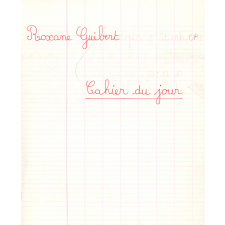 Roxane Guibert
Cahier du jour